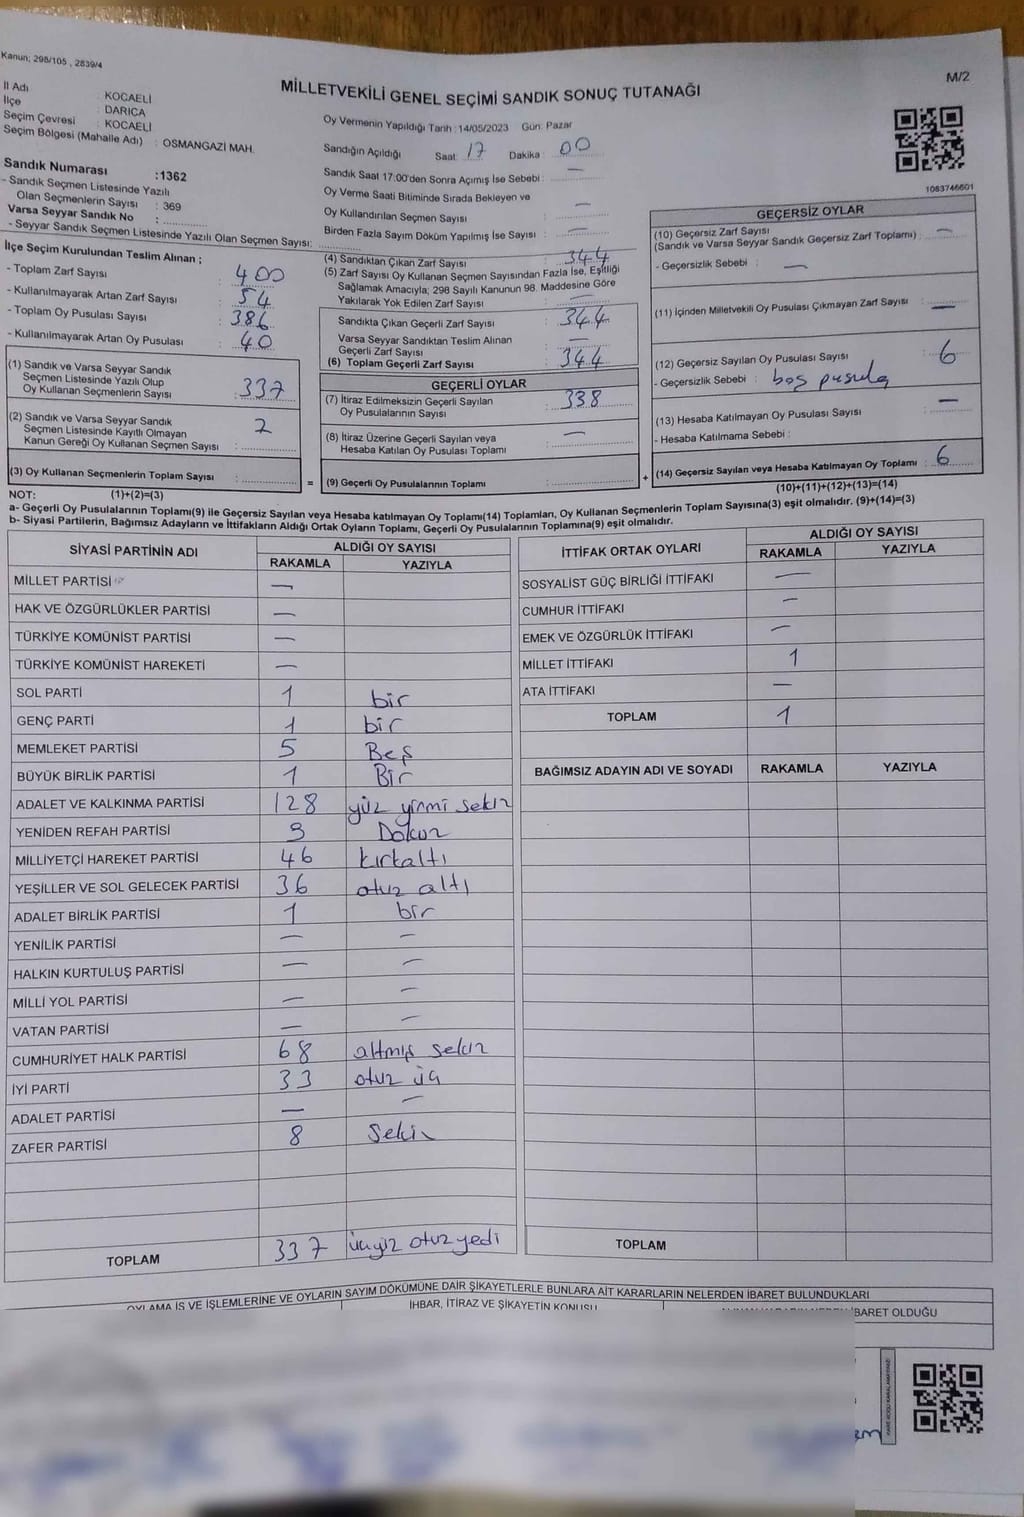 Kanun; 298/105 , 2839/4
M/2
MİLLETVEKİLİ GENEL SEÇİMİ SANDIK SONUÇ TUTANAĞI
İl Adı : KOCAELİ
İlçe : DARICA
Seçim Çevresi : KOCAELİ
Seçim Bölgesi (Mahalle Adı) : OSMANGAZİ MAH.
Sandık Numarası :1362
- Sandık Seçmen Listesinde Yazılı
Olan Seçmenlerin Sayısı : 369
Varsa Seyyar Sandık No :
- Seyyar Sandık Seçmen Listesinde Yazılı Olan Seçmen Sayısı:
Oy Vermenin Yapıldığı Tarih :14/05/2023 Gün: Pazar
Sandığın Açıldığı Saat: 17 Dakika : 00
Sandık Saat 17:00'den Sonra Açımış İse Sebebi : —
Oy Verme Saati Bitiminde Sırada Bekleyen ve
Oy Kullandırılan Seçmen Sayısı : —
Birden Fazla Sayım Döküm Yapılmış İse Sayısı : —
1083746601
İlçe Seçim Kurulundan Teslim Alınan ;
- Toplam Zarf Sayısı : 400
- Kullanılmayarak Artan Zarf Sayısı : 54
- Toplam Oy Pusulası Sayısı : 386
- Kullanılmayarak Artan Oy Pusulası : 40
(1) Sandık ve Varsa Seyyar Sandık
Seçmen Listesinde Yazılı Olup
Oy Kullanan Seçmenlerin Sayısı : 337
(2) Sandık ve Varsa Seyyar Sandık
Seçmen Listesinde Kayıtlı Olmayan
Kanun Gereği Oy Kullanan Seçmen Sayısı : 2
(3) Oy Kullanan Seçmenlerin Toplam Sayısı :
(4) Sandıktan Çıkan Zarf Sayısı : 344
(5) Zarf Sayısı Oy Kullanan Seçmen Sayısından Fazla İse, Eşitliği
Sağlamak Amacıyla; 298 Sayılı Kanunun 98. Maddesine Göre
Yakılarak Yok Edilen Zarf Sayısı : —
Sandıkta Çıkan Geçerli Zarf Sayısı : 344
Varsa Seyyar Sandıktan Teslim Alınan
Geçerli Zarf Sayısı : —
(6) Toplam Geçerli Zarf Sayısı : 344
GEÇERLİ OYLAR
(7) İtiraz Edilmeksizin Geçerli Sayılan
Oy Pusulalarının Sayısı : 338
(8) İtiraz Üzerine Geçerli Sayılan veya
Hesaba Katılan Oy Pusulası Toplamı : —
= (9) Geçerli Oy Pusulalarının Toplamı :
GEÇERSİZ OYLAR
(10) Geçersiz Zarf Sayısı
(Sandık ve Varsa Seyyar Sandık Geçersiz Zarf Toplamı) : —
- Geçersizlik Sebebi : —
(11) İçinden Milletvekili Oy Pusulası Çıkmayan Zarf Sayısı : —
(12) Geçersiz Sayılan Oy Pusulası Sayısı : 6
- Geçersizlik Sebebi : boş pusula
(13) Hesaba Katılmayan Oy Pusulası Sayısı : —
- Hesaba Katılmama Sebebi :
+ (14) Geçersiz Sayılan veya Hesaba Katılmayan Oy Toplamı : 6
NOT: (1)+(2)=(3)
(10)+(11)+(12)+(13)=(14)
a- Geçerli Oy Pusulalarının Toplamı(9) ile Geçersiz Sayılan veya Hesaba katılmayan Oy Toplamı(14) Toplamları, Oy Kullanan Seçmenlerin Toplam Sayısına(3) eşit olmalıdır. (9)+(14)=(3)
b- Siyasi Partilerin, Bağımsız Adayların ve İttifakların Aldığı Ortak Oyların Toplamı, Geçerli Oy Pusulalarının Toplamına(9) eşit olmalıdır.
SİYASİ PARTİNİN ADI ALDIĞI OY SAYISI
RAKAMLA YAZIYLA
MİLLET PARTİSİ —
HAK VE ÖZGÜRLÜKLER PARTİSİ —
TÜRKİYE KOMÜNİST PARTİSİ —
TÜRKİYE KOMÜNİST HAREKETİ —
SOL PARTİ 1 bir
GENÇ PARTİ 1 bir
MEMLEKET PARTİSİ 5 Beş
BÜYÜK BİRLİK PARTİSİ 1 Bir
ADALET VE KALKINMA PARTİSİ 128 yüz yirmi sekiz
YENİDEN REFAH PARTİSİ 9 Dokuz
MİLLİYETÇİ HAREKET PARTİSİ 46 kırkaltı
YEŞİLLER VE SOL GELECEK PARTİSİ 36 otuz altı
ADALET BİRLİK PARTİSİ 1 bir
YENİLİK PARTİSİ — —
HALKIN KURTULUŞ PARTİSİ — —
MİLLİ YOL PARTİSİ — —
VATAN PARTİSİ — —
CUMHURİYET HALK PARTİSİ 68 altmış sekiz
İYİ PARTİ 33 otuz üç
ADALET PARTİSİ — —
ZAFER PARTİSİ 8 Sekiz
TOPLAM 337 üçyüz otuzyedi
İTTİFAK ORTAK OYLARI ALDIĞI OY SAYISI
RAKAMLA YAZIYLA
SOSYALİST GÜÇ BİRLİĞİ İTTİFAKI —
CUMHUR İTTİFAKI —
EMEK VE ÖZGÜRLÜK İTTİFAKI —
MİLLET İTTİFAKI 1
ATA İTTİFAKI —
TOPLAM 1
BAĞIMSIZ ADAYIN ADI VE SOYADI RAKAMLA YAZIYLA
TOPLAM
OYLAMA İŞ VE İŞLEMLERİNE VE OYLARIN SAYIM DÖKÜMÜNE DAİR ŞİKAYETLERLE BUNLARA AİT KARARLARIN NELERDEN İBARET BULUNDUKLARI
İHBAR, İTİRAZ VE ŞİKAYETİN KONUSU
İBARET OLDUĞU